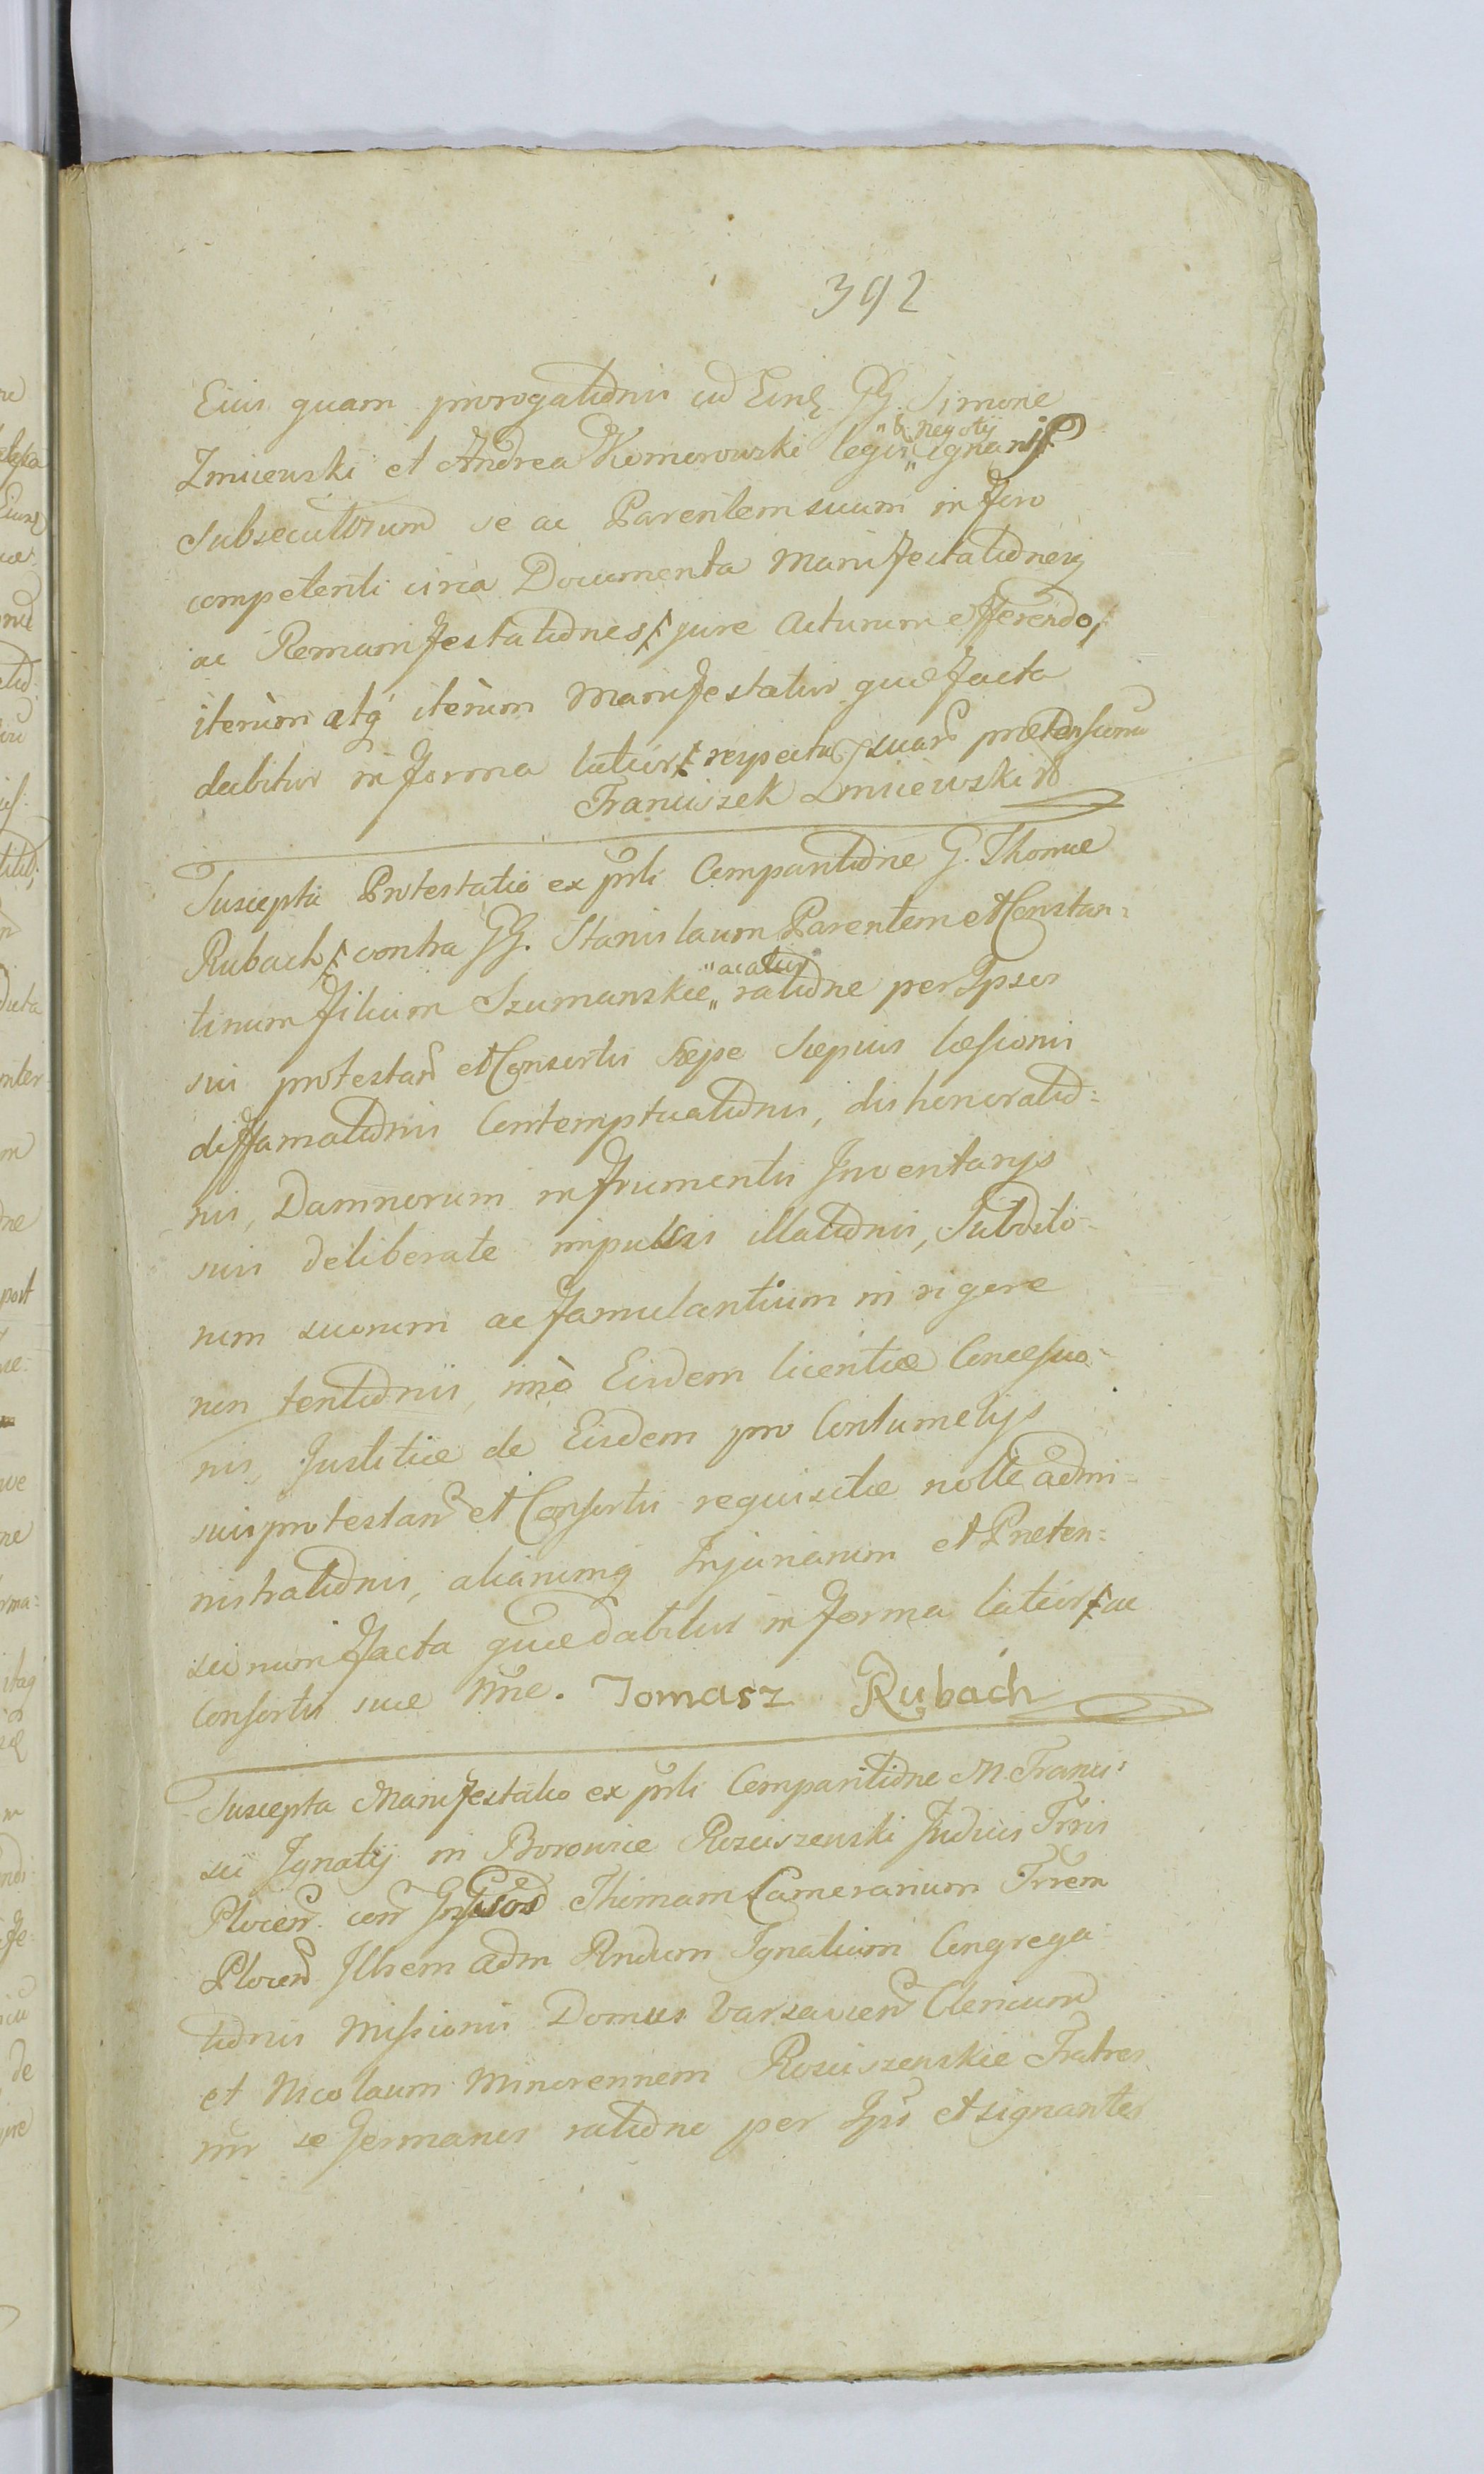 392
Eius quam prorogationis ad GG. Simone
Zmiiewski et Andrea Komorowski legis "& negotij" ignaris
subsecutorum se ac Parentem suum in foro
competenti circa Documenta Manifestationes
ac Remanifestationes jure acturum offerendo,
iterùm atq iterùm Manifestatur quæ facta
dabitur in forma latiori respectu suarū prætensionū
Franciszek Zmiiewski
Suscepta Protestatio ex prāti Comparitione G. Thomæ
Rubach contra GG. Stanislaum Parentem et Constan=
tinum filium Szumanskie "acatur" ratione per Ipsos
sui protestan et Consortis sæpe sæpius læsionis
diffamationis Contemptuationis, dishonoratio=
nis, Damnorum in frumentis Inventarijs
suis deliberate impulsis illationis, Subdito-
rum suorum ac famulantium in rigore
non tentionis, imò Eisdem licentiæ Concessio-
nis, Justitiæ de Eisdem pro Contumelijs
suis protestan et Consortis requisitæ nolle admi=
nistrationis, aliarumq Injuriarum et Præten=
sionum facta quæ dabitur in forma latiori ac
Consortis suæ nñe. Tomasz Rubach
Suscepta Manifestatio ex prāti Comparitione M. Franci=
sci Ignatij in Borowice Rosciszewski Judicis Trris
Plocen con Thomam Camerarium Trrem
Plocen Illrem adm Rndum Ignatium Congrega
tionis Missionis Domus Varsavien Clericum
et Nicolaum Minorennem Rosciszewskie Fratres
inr se germanos ratione per Ipsos et signanter